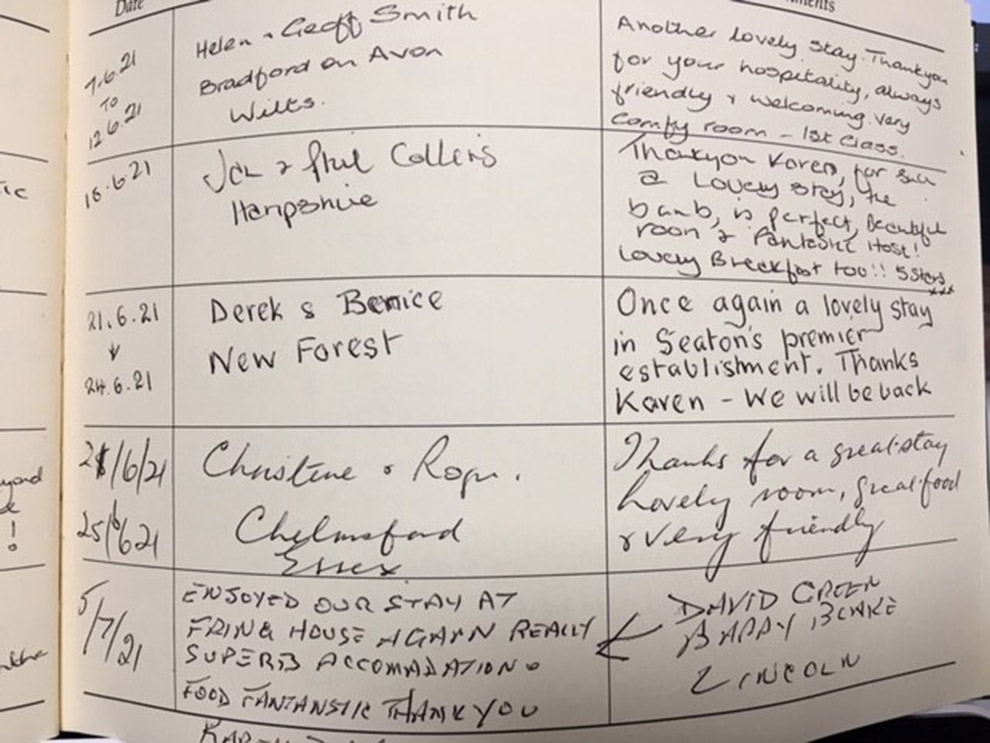 Date
7.6.21
TO
12.6.21
Helen & Geoff Smith
Bradford on Avon
Wilts.
Another lovely stay. Thankyou
for your hospitality, always
friendly & welcoming. Very
Comfy room – 1st Class.
18.6.21
Jan & Phil Collens
Hampshire
Thankyou Karen, for such
a Lovely stay, the
is perfect, Beautiful
room & Fantastic Host!
Lovely Breakfast too!! 5 Stars
***
21.6.21
↓
24.6.21
Derek & Bernice
New Forest
Once again a lovely stay
in Seaton's premier
establishment. Thanks
Karen – We will be back
/6/21
25/6/21
Christine & Roger.
Chelmsford
Essex
Thanks for a great stay
Lovely room, great food
& very friendly
5/7/21
ENJOYED OUR STAY AT
HOUSE AGAIN REALLY
SUPERB ACCOMADATION.
FOOD FANTANSTIC THANK YOU
DAVID GREEN
BARRY BLAKE
LINCOLN